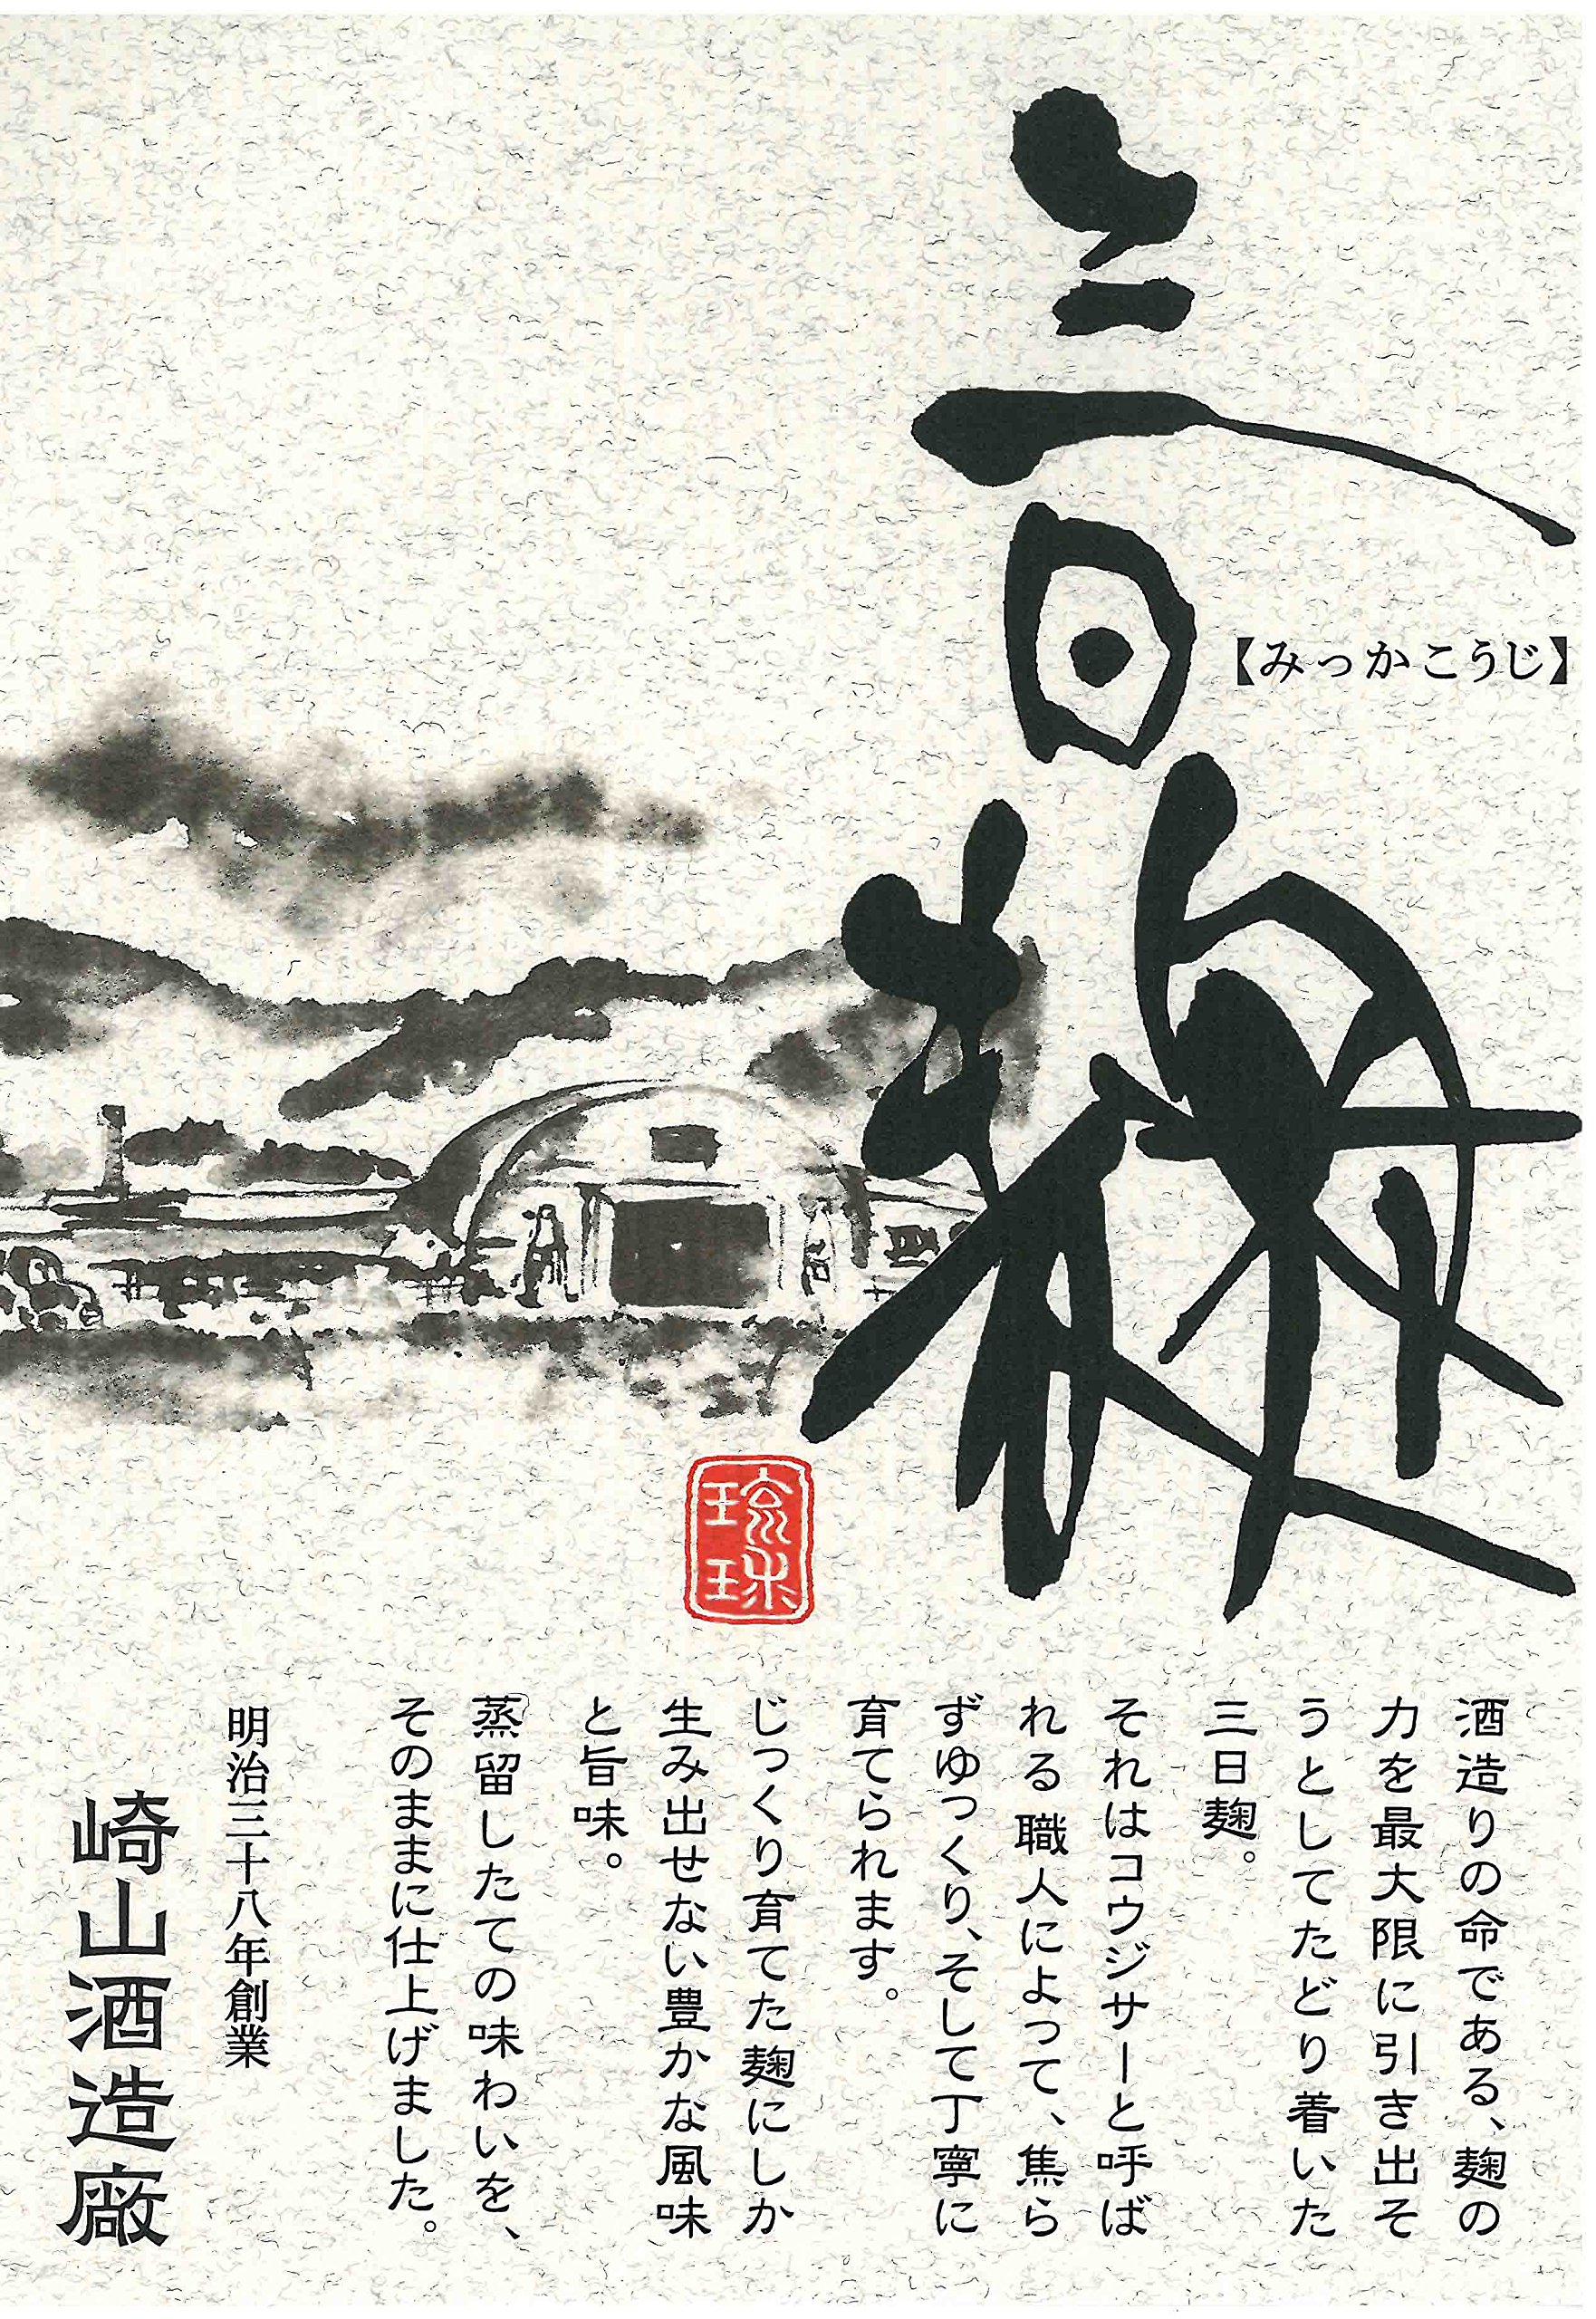 三日麹
【みっかこうじ】
琉球
酒造りの命である、麹の
力を最大限に引き出そ
うとしてたどり着いた
三日麹。
それはコウジサーと呼ば
れる職人によって、焦ら
ずゆっくり、そして丁寧に
育てられます。
じっくり育てた麹にしか
生み出せない豊かな風味
と旨味。
蒸留したての味わいを、
そのままに仕上げました。
明治三十八年創業
崎山酒造廠